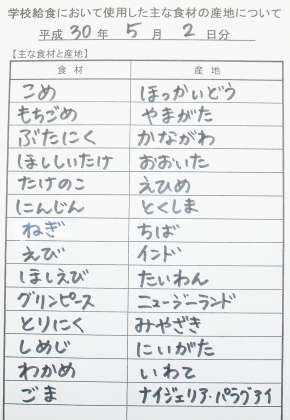 学校給食において使用した主な食材の産地について
平成 30 年 5 月 2 日分
【主な食材と産地】
食材 産地
こめ ほっかいどう
もちごめ やまがた
ぶたにく かながわ
ほししいたけ おおいた
たけのこ えひめ
にんじん とくしま
ねぎ ちば
えび インド
ほしえび たいわん
グリンピース ニュージーランド
とりにく みやざき
しめじ にいがた
わかめ いわて
ごま ナイジェリア・パラグアイ